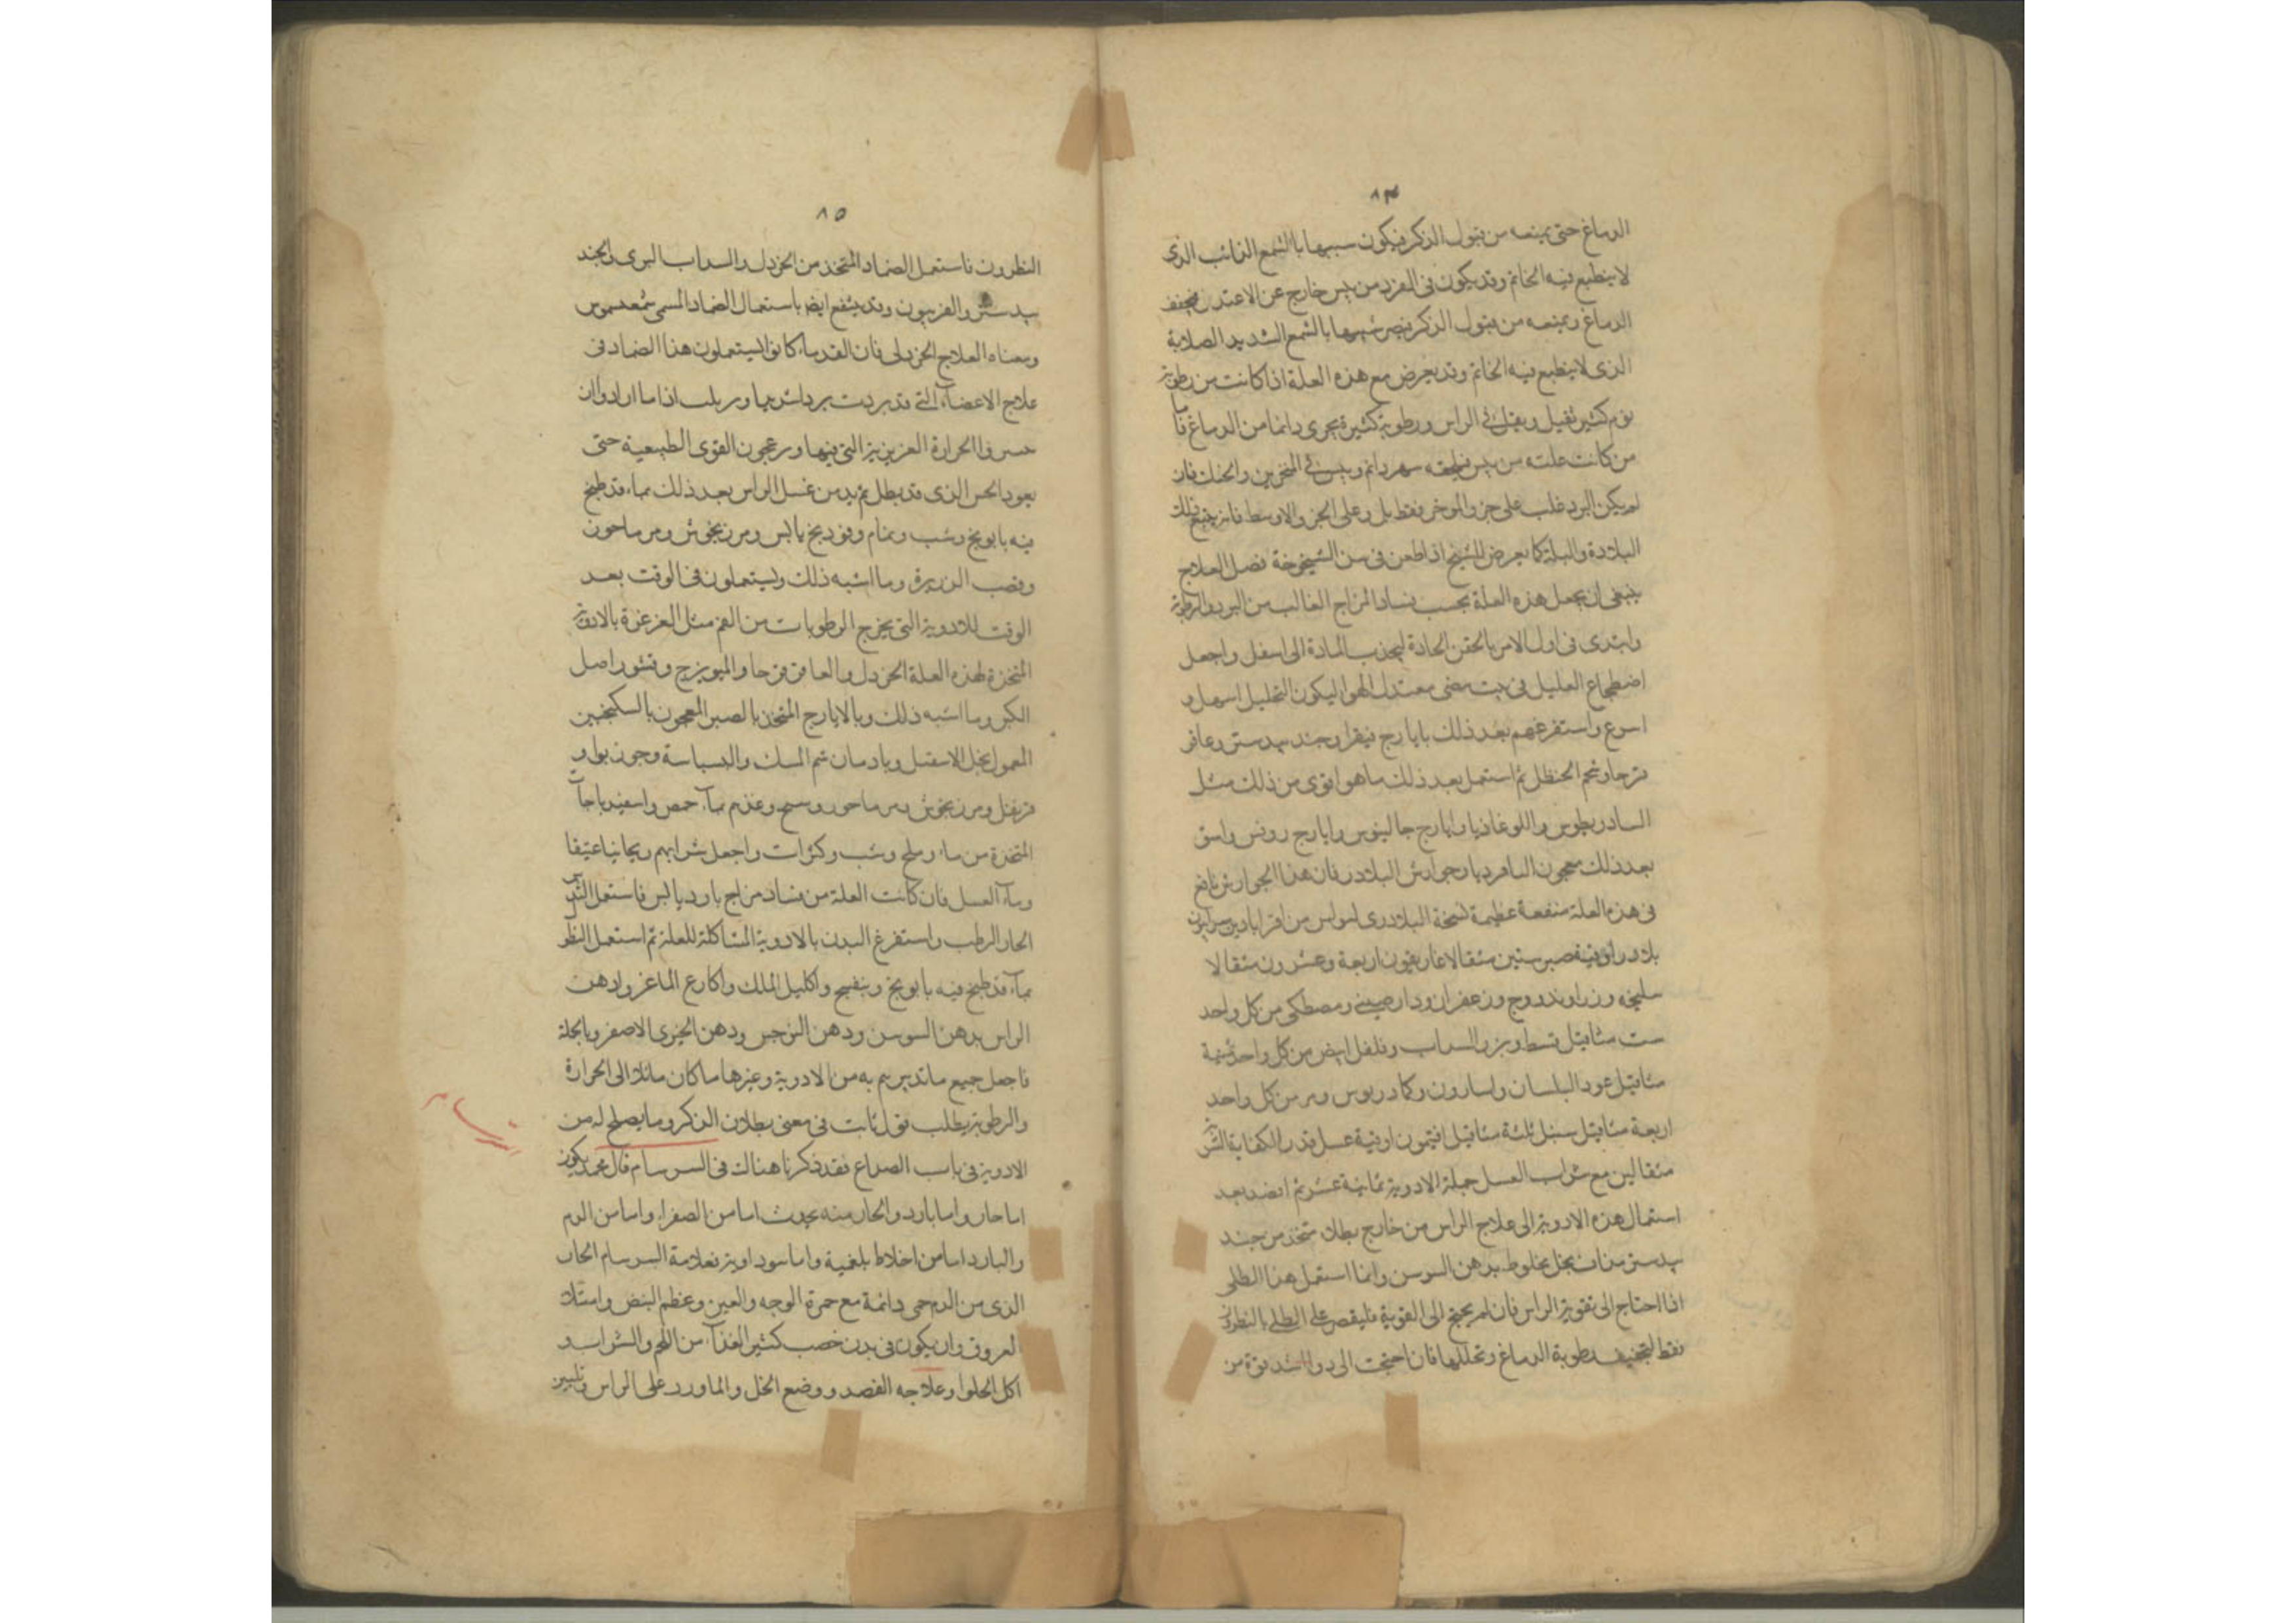 ٨٤
الدماغ حتى يمنعه من قبول الذكر فيكون سببها بالشمع الذائب الذى
لا ينطبع فيه الخاتم وقد يكون فى الفرد من يبس خارج عن الاعتدل فيجفف
الدماغ ويمنعه من قبول الذكر فيصر شبيها بالشمع الشديد الصلابة
الذى لا ينطبع فيه الخاتم وقد يعرض مع هذه العلة اذا كانت من رطوبة
نوم كثير ثقيل ويقل فى الراس ورطوبة كثيرة يجرى دائما من الدماغ فاما
من كانت علته من يبس فيلحقه سهر دائم ويبس فى المنخرين والحنك فان
لم يكن البرد غلب على جزو الموخر فقط بل وعلى الجزو الاوسط فانه يتبع ذلك
البلادة والبلة كما يعرض للشيخ اذا طعن فى سن الشيخوخة فصل العلاج
ينبغى ان يجعل هذه العلة بحسب فساد المزاج الغالب من البرد والرطوبة
وابتدى فى اول الامر بالحقن الحادة ليجذب المادة الى اسفل واجعل
اضطجاع العليل فى بيت مضى معتدل الهوا ليكون التحليل اسهل و
اسرع واستفرغهم بعد ذلك بايارج فيقرا وجند بيدستر وعاقر
قرحا وشحم الحنظل ثم استعمل بعد ذلك ما هو اقوى من ذلك مثل
السادريطوس واللوغاذيا وايارج جالينوس وايارج روفس واسق
بعد ذلك معجون البلادريا وجوارش البلادر فان هذا الجوارش نافع
فى هذه العلة منفعة عظيمة نسخة البلادرى من اقراباذين سرابيون
بلادر اوقية صبر ستين مثقالا غاريقون اربعة وعشرون مثقالا
سليخه وزراوند دوج وزعفران ودارصينى ومصطكى من كل واحد
ست مثاقيل قسط وبزر السداب وفلفل ابيض من كل واحد ثمنية
مثاقيل عود البلسان واسارون وكمادريوس ومر من كل واحد
اربعة مثاقيل سنبل ثلثة مثاقيل افتيمون اوقية عسل قدر الكفاية الشربة
مثقالين مع شراب العسل جملة الادوية ثمانية عشر ثم اقصد بعد
استعمال هذه الادوية الى علاج الراس من خارج بطلاء متخذ من جند
بيدستر مذاف بخل مخلوط بدهن السوسن وانما استعمل هذا الطلى
اذا احتاج الى تقوية الراس فان لم يحتج الى القوية فليقصر على الطلى بالنظرون
فقط لتجفيف رطوبة الدماغ وتحللها فان احتجت الى دوا اشد قوة من
٨٥
النظرون فاستعمل الضماد المتخذ من الخردل والسداب البرى والجند
بيدستر والفربيون وقد ينتفع ايضا باستعمال الضماد المسمى
ومعناه العلاج الخردلى فان القدماء كانوا يستعملون هذا الضماد فى
علاج الاعضاء التى قد بردت بردا شديدا وربلت اذا ما ارادوا ان
الحرارة الغريزية التى فيها ورعجون القوى الطبيعية حتى
يعود الحس الذى قد بطل ثم يد من غسل الراس بعد ذلك بماء قد طبخ
فيه بابونج وشب ونمام وفودنج يابس ومرزنجوش ومرماحوز
وقصب الذريرة وما اشبه ذلك ويستعملون فى الوقت بعد
الوقت للادوية التى يخرج الرطوبات من الفم مثل الغرغرة بالادوية
المتخذة لهذه العلة الخردل والعاقرقرحا والميويزج وقشور اصل
الكبر وما اشبه ذلك وبالايارج المتخذ بالصبر المعجون بالسكنجبين
المعمول بخل الاسقيل وبادمان شم المسك والبسباسة وجوز بوا و
قرنفل ومرزنجوش ومرماحوز وغذهم بماء حمص واسفيدباجات
المتخذة من ماء وملح وشب وكراث واجعل شرابهم ريحانيا عتيقا
وماء العسل فان كانت العلة من فساد مزاج بارد يابس فاستعمل التدبير
الحار الرطب واستفرغ البدن بالادوية المشاكلة للعلة ثم استعمل النطول
بماء قد طبخ فيه بابونج وبنفسج واكليل الملك واكارع الماعز وادهن
الراس بدهن السوسن ودهن النرجس ودهن الخيرى الاصفر وبالجلة
فاجعل جميع ما تدبرهم به من الادوية وغيرها ما كان مائلا الى الحرارة
والرطوبة يطلب قول ثابت فى معنى بطلان الذكر وما يصلح له من
الادوية فى باب الصداع فقد ذكرنا هناك فى السرسام قال محمد يكون
اما حار واما بارد والحار منه يحدث اما من الصفراء واما من الدم
والبارد اما من اخلاط بلغمية واما سوداوية فعلامة السرسام الحار
الذى من الدم حمى دائمة مع حمرة الوجه والعين وعظم النبض وامتلاء
العروق وان يكون فى بدن خصب كثير الغذاء من اللحم والشراب
اكل الحلوا وعلاجه الفصد ووضع الخل والماورد على الراس وتليين